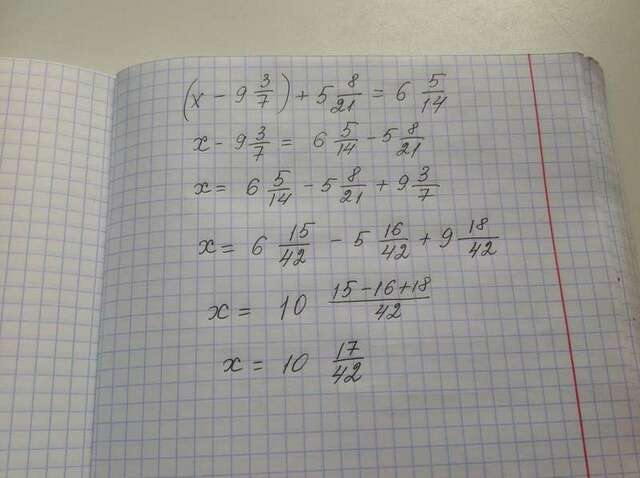 (x - 9 3/7) + 5 8/21 = 6 5/14
x - 9 3/7 = 6 5/14 - 5 8/21
x = 6 5/14 - 5 8/21 + 9 3/7
x = 6 15/42 - 5 16/42 + 9 18/42
x = 10 15-16+18/42
x = 10 17/42